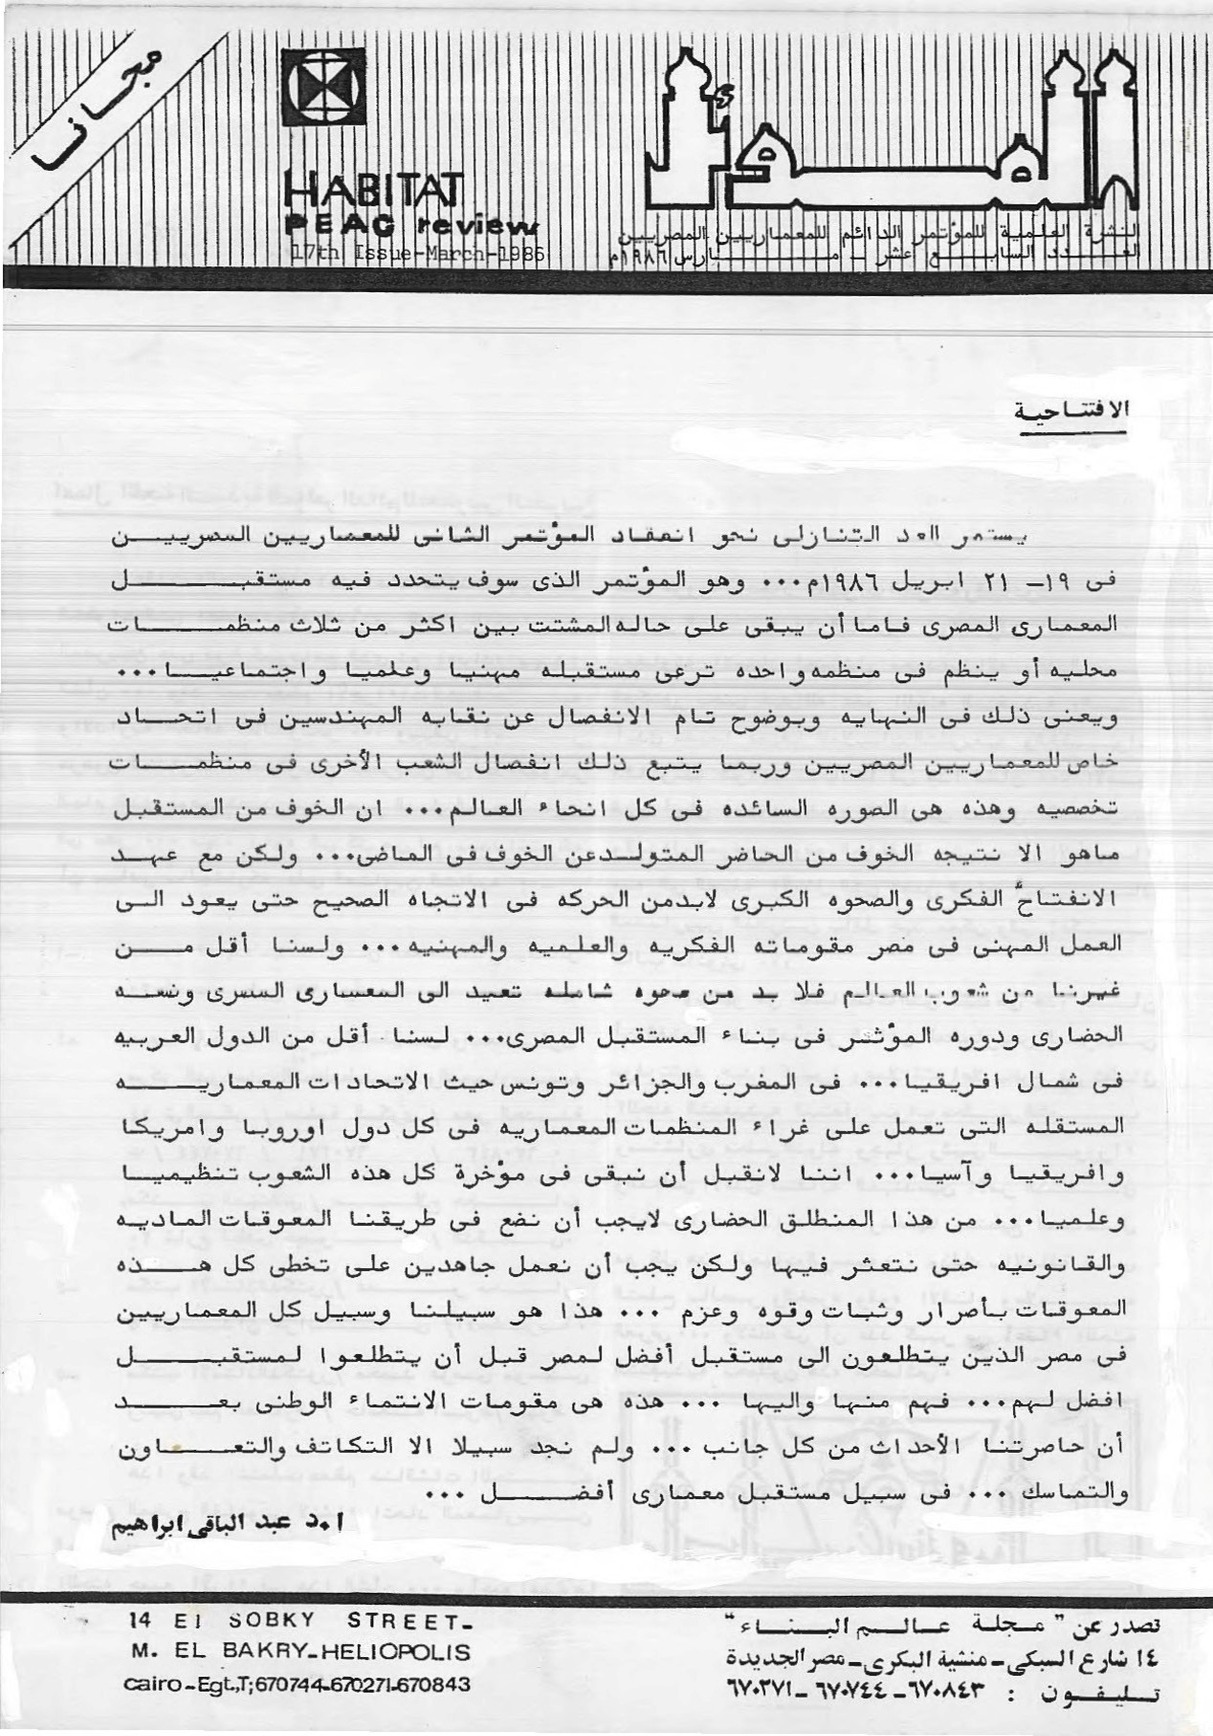 مجانا
HABITAT
PEAC review
17th Issue-March-1986
النشرة العلمية للمؤتمر الدائم للمعماريين المصريين
العدد السابع عشر - مارس ١٩٨٦م
الافتتاحية
يستمر العد التنازلى نحو انعقاد المؤتمر الثانى للمعماريين المصريين
فى ١٩- ٢١ ابريل ١٩٨٦م... وهو المؤتمر الذى سوف يتحدد فيه مستقبل
المعمارى المصرى فاما أن يبقى على حاله المشتت بين اكثر من ثلاث منظمات
محليه أو ينظم فى منظمه واحده ترعى مستقبله مهنيا وعلميا واجتماعيا...
ويعنى ذلك فى النهايه وبوضوح تام الانفصال عن نقابه المهندسين فى اتحاد
خاص للمعماريين المصريين وربما يتبع ذلك انفصال الشعب الأخرى فى منظمات
تخصصيه وهذه هى الصوره السائده فى كل انحاء العالم... ان الخوف من المستقبل
ماهو الا نتيجه الخوف من الحاضر المتولد عن الخوف فى الماضى... ولكن مع عهد
الانفتاح الفكرى والصحوه الكبرى لابد من الحركه فى الاتجاه الصحيح حتى يعود الى
العمل المهنى فى مصر مقوماته الفكريه والعلميه والمهنيه... ولسنا أقل من
غيرنا من شعوب العالم فلا بد من صحوه شامله تعيد الى المعمارى المصرى وضعه
الحضارى ودوره المؤثر فى بناء المستقبل المصرى... لسنا أقل من الدول العربيه
فى شمال افريقيا... فى المغرب والجزائر وتونس حيث الاتحادات المعماريه
المستقله التى تعمل على غراء المنظمات المعماريه فى كل دول اوروبا وامريكا
وافريقيا وآسيا... اننا لانقبل أن نبقى فى مؤخرة كل هذه الشعوب تنظيميا
وعلميا... من هذا المنطلق الحضارى لايجب أن نضع فى طريقنا المعوقات الماديه
والقانونيه حتى نتعثر فيها ولكن يجب أن نعمل جاهدين على تخطى كل هذه
المعوقات بأصرار وثبات وقوه وعزم ... هذا هو سبيلنا وسبيل كل المعماريين
فى مصر الذين يتطلعون الى مستقبل أفضل لمصر قبل أن يتطلعوا لمستقبل
افضل لهم... فهم منها واليها ... هذه هى مقومات الانتماء الوطنى بعد
أن حاصرتنا الأحداث من كل جانب ... ولم نجد سبيلا الا التكاتف والتعاون
والتماسك ... فى سبيل مستقبل معمارى أفضل ...
ا.د عبد الباقى ابراهيم
14 El SOBKY STREET-
M. EL BAKRY-HELIOPOLIS
cairo-Egt.,T;670744-670271-670843
تصدر عن "مجلة عالم البناء"
١٤ شارع السبكى - منشية البكرى - مصر الجديدة
تليفون : ٦٧٠٨٤٣ - ٦٧٠٧٤٤ - ٦٧٠٢٧١